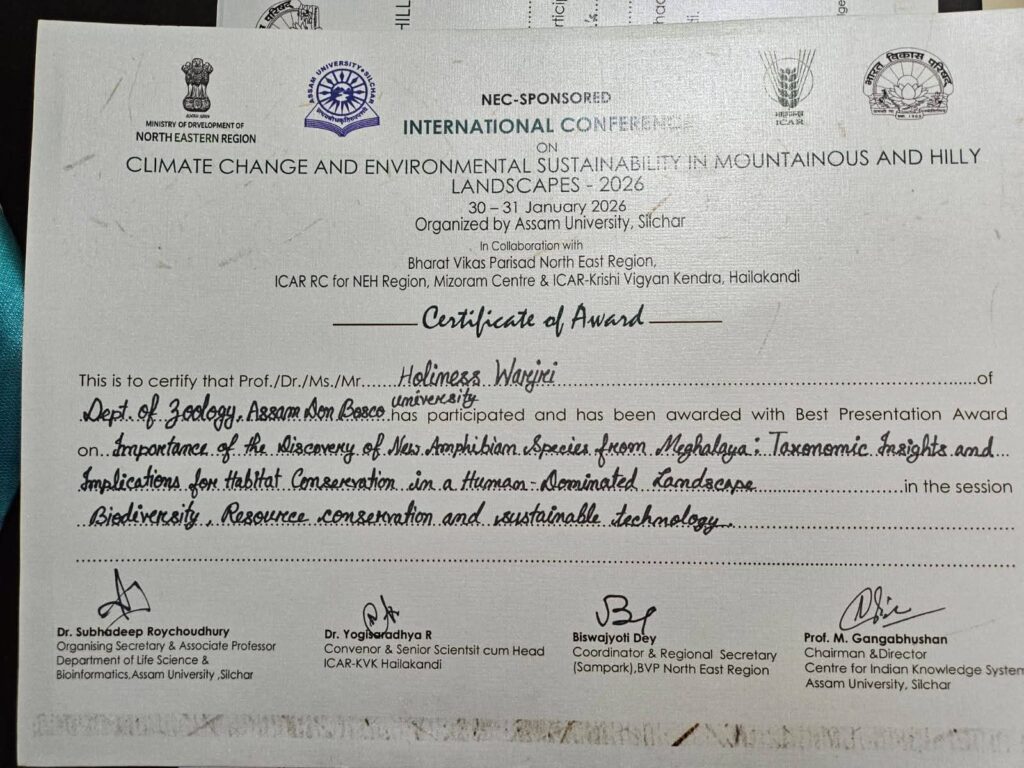 HILL
MINISTRY OF DRVELOPMENT OF
NORTH EASTERN REGION
ASSAM UNIVERSITY • SILCHAR
ICAR
भारत विकास परिषद्
NEC-SPONSORED
INTERNATIONAL CONFERENCE
ON
CLIMATE CHANGE AND ENVIRONMENTAL SUSTAINABILITY IN MOUNTAINOUS AND HILLY
LANDSCAPES - 2026
30 – 31 January 2026
Organized by Assam University, Silchar
In Collaboration with
Bharat Vikas Parisad North East Region,
ICAR RC for NEH Region, Mizoram Centre & ICAR-Krishi Vigyan Kendra, Hailakandi
Certificate of Award
This is to certify that Prof./Dr./Ms./Mr. Holiness Warjri of
Dept. of Zoology, Assam Don Bosco university has participated and has been awarded with Best Presentation Award
on Importance of the Discovery of New Amphibian Species from Meghalaya: Taxonomic Insights and
Implications for Habitat Conservation in a Human-Dominated Landscape in the session
Biodiversity, Resource conservation and sustainable technology.
Dr. Subhadeep Roychoudhury
Organising Secretary & Associate Professor
Department of Life Science &
Bioinformatics, Assam University ,Silchar
Dr. Yogisaradhya R
Convenor & Senior Scientsit cum Head
ICAR-KVK Hailakandi
Biswajyoti Dey
Coordinator & Regional Secretary
(Sampark),BVP North East Region
Prof. M. Gangabhushan
Chairman &Director
Centre for Indian Knowledge System
Assam University, Silchar